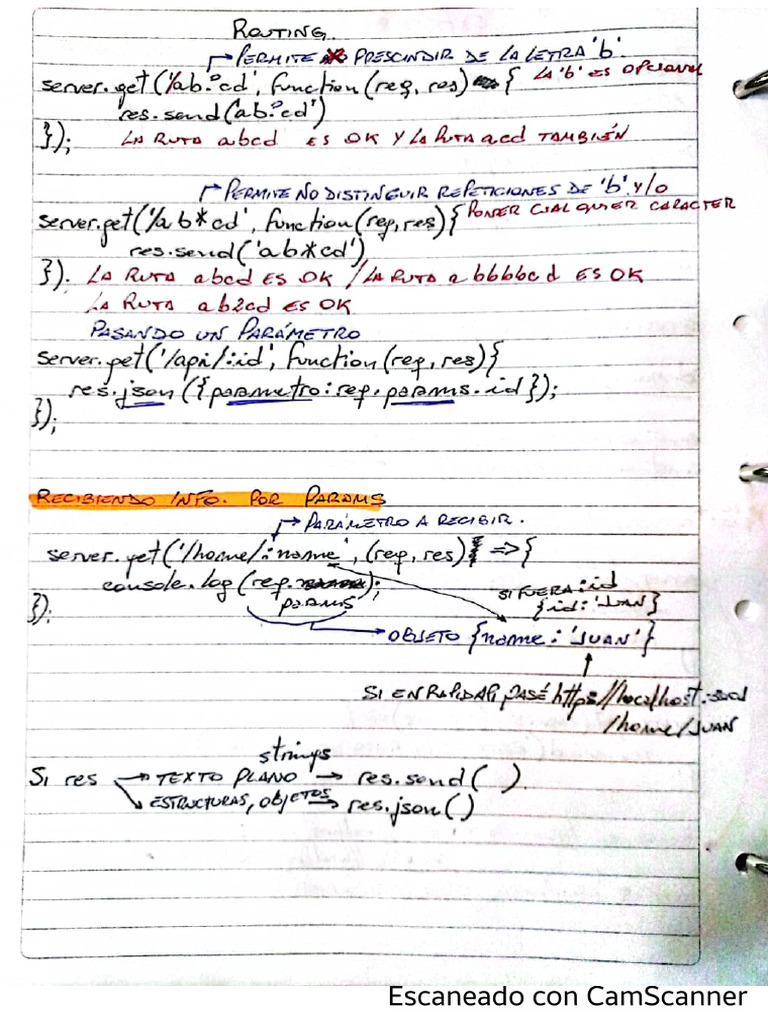 ROUTING.
PERMITE PRESCINDIR DE LA LETRA 'b'.
server.get('/ab?cd', function(req, res) { LA 'b' ES OPCIONAL
res.send('ab?cd')
}); LA RUTA abcd ES OK Y LA RUTA acd TAMBIÉN
PERMITE NO DISTINGUIR REPETICIONES DE 'b' Y/O
server.get('/ab*cd', function(req, res){ PONER CUALQUIER CARACTER
res.send('ab*cd')
}). LA RUTA abcd ES OK / LA RUTA abbbbcd ES OK
LA RUTA ab2cd ES OK
PASANDO UN PARÁMETRO
server.get('/api/:id', function(req, res){
res.json({parametro: req.params.id});
});
RECIBIENDO INFO. POR PARAMS
PARÁMETRO A RECIBIR.
server.get('/home/:name', (req, res) => {
console.log(req.params);
});
SI FUERA :id
{id: 'JUAN}
OBJETO {name: 'JUAN'}
SI EN RAPIDAPI, PASÉ https://localhost:
/home/JUAN
strings
SI res → TEXTO PLANO → res.send( )
ESTRUCTURAS, OBJETOS → res.json()
Escaneado con CamScanner